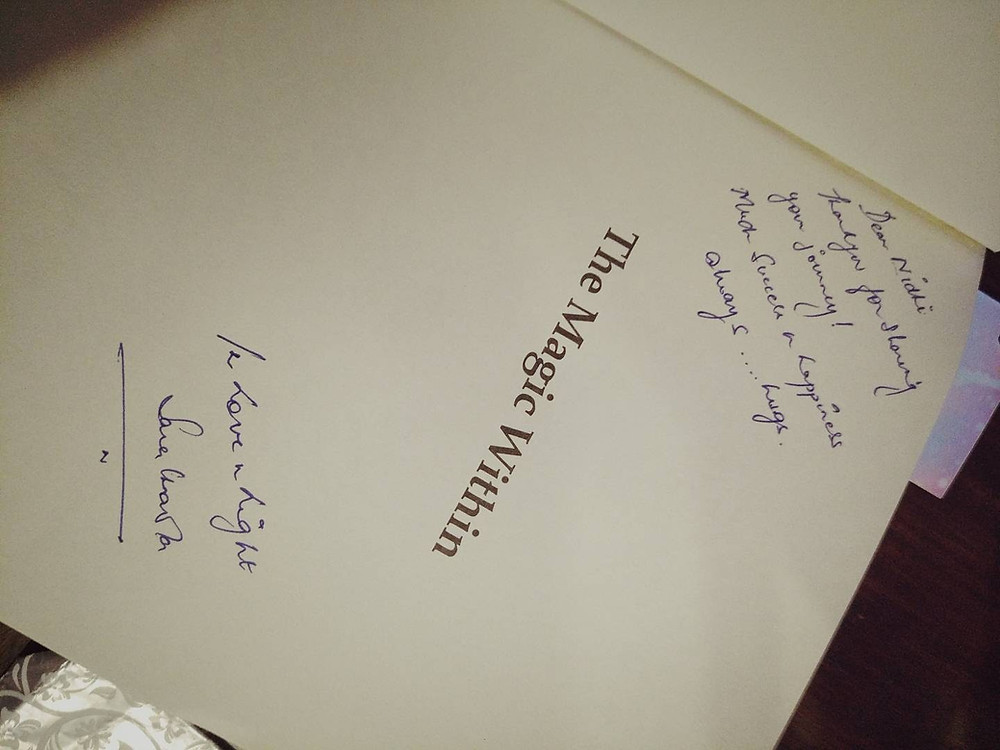 Dear Nidhi
Thankyou for sharing
your journey!
Much Success n happiness
always ..... hugs.
The Magic Within
In Love n Light